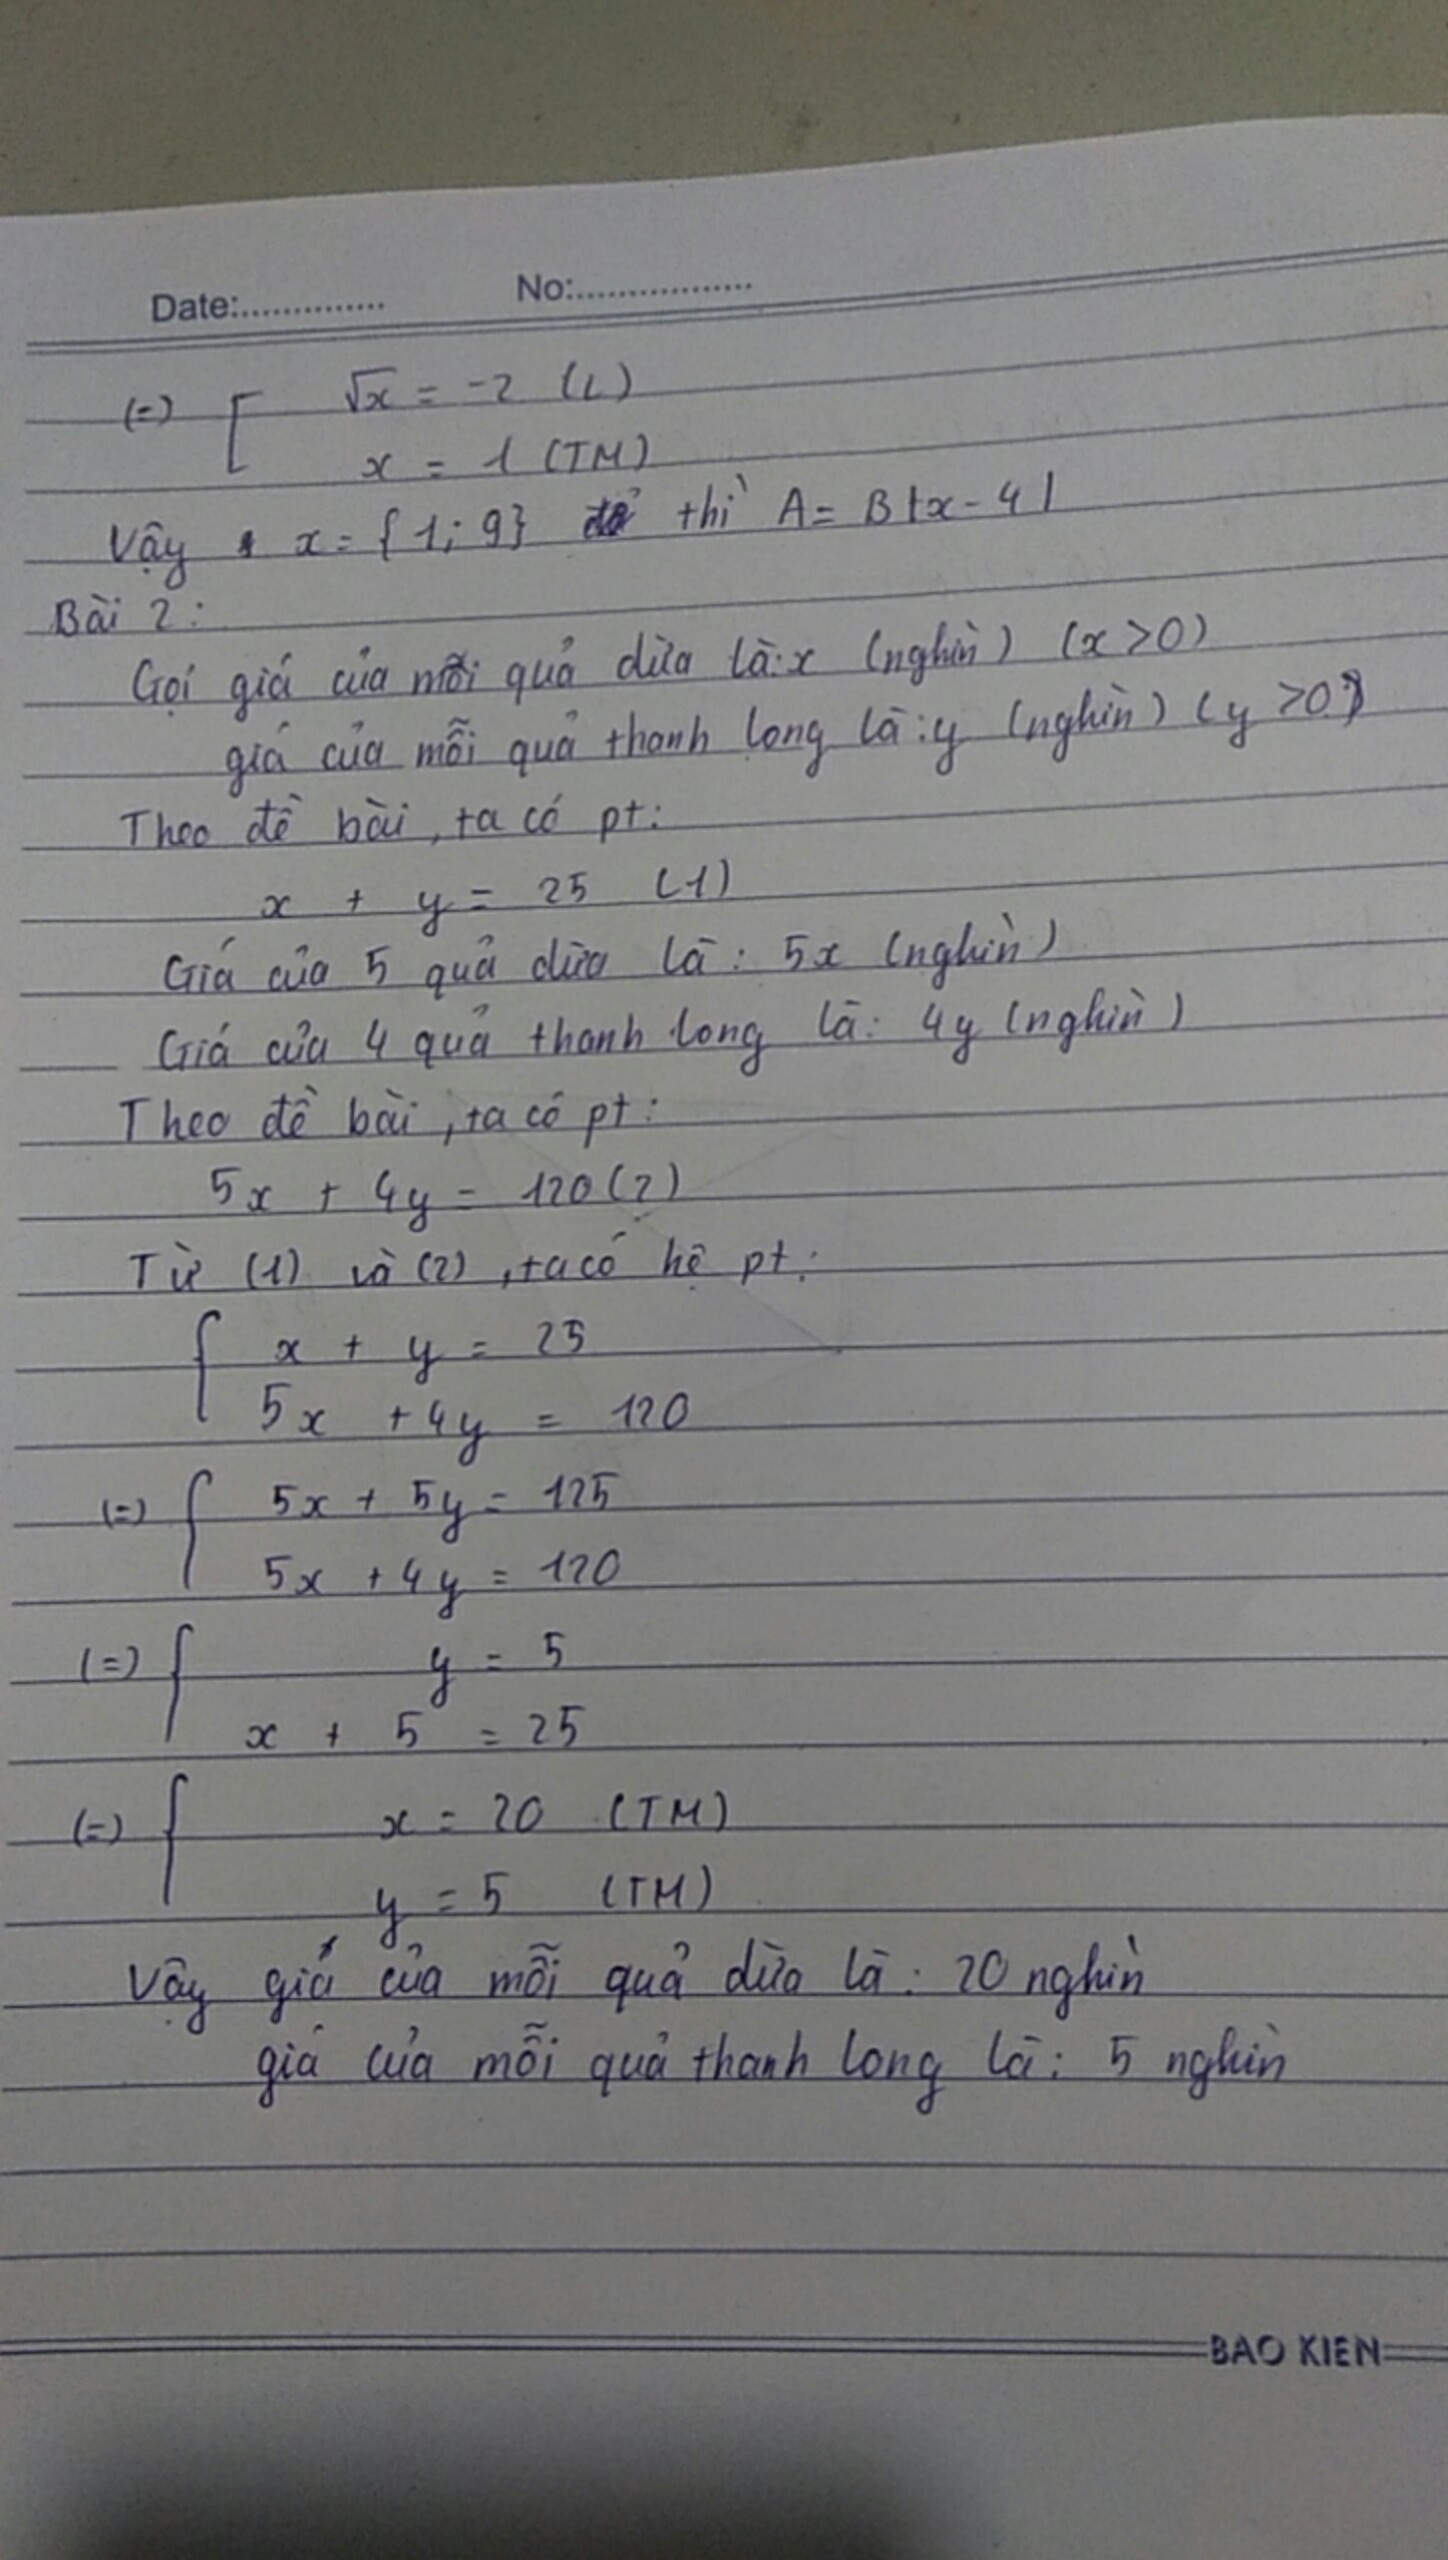 Date:............... No:..................
(=) [ √x = -2 (L)
x = 1 (TM)
Vậy x = {1; 9} thì A = B|x - 4|
Bài 2:
Gọi giá của mỗi quả dừa là: x (nghìn) (x > 0)
giá của mỗi quả thanh long là: y (nghìn) (y > 0)
Theo đề bài, ta có pt:
x + y = 25 (1)
Giá của 5 quả dừa là: 5x (nghìn)
Giá của 4 quả thanh long là: 4y (nghìn)
Theo đề bài, ta có pt:
5x + 4y = 120 (2)
Từ (1) và (2), ta có hệ pt:
{ x + y = 25
5x + 4y = 120
(=) { 5x + 5y = 125
5x + 4y = 120
(=) { y = 5
x + 5 = 25
(=) { x = 20 (TM)
y = 5 (TM)
Vậy giá của mỗi quả dừa là: 20 nghìn
giá của mỗi quả thanh long là: 5 nghìn
BAO KIEN